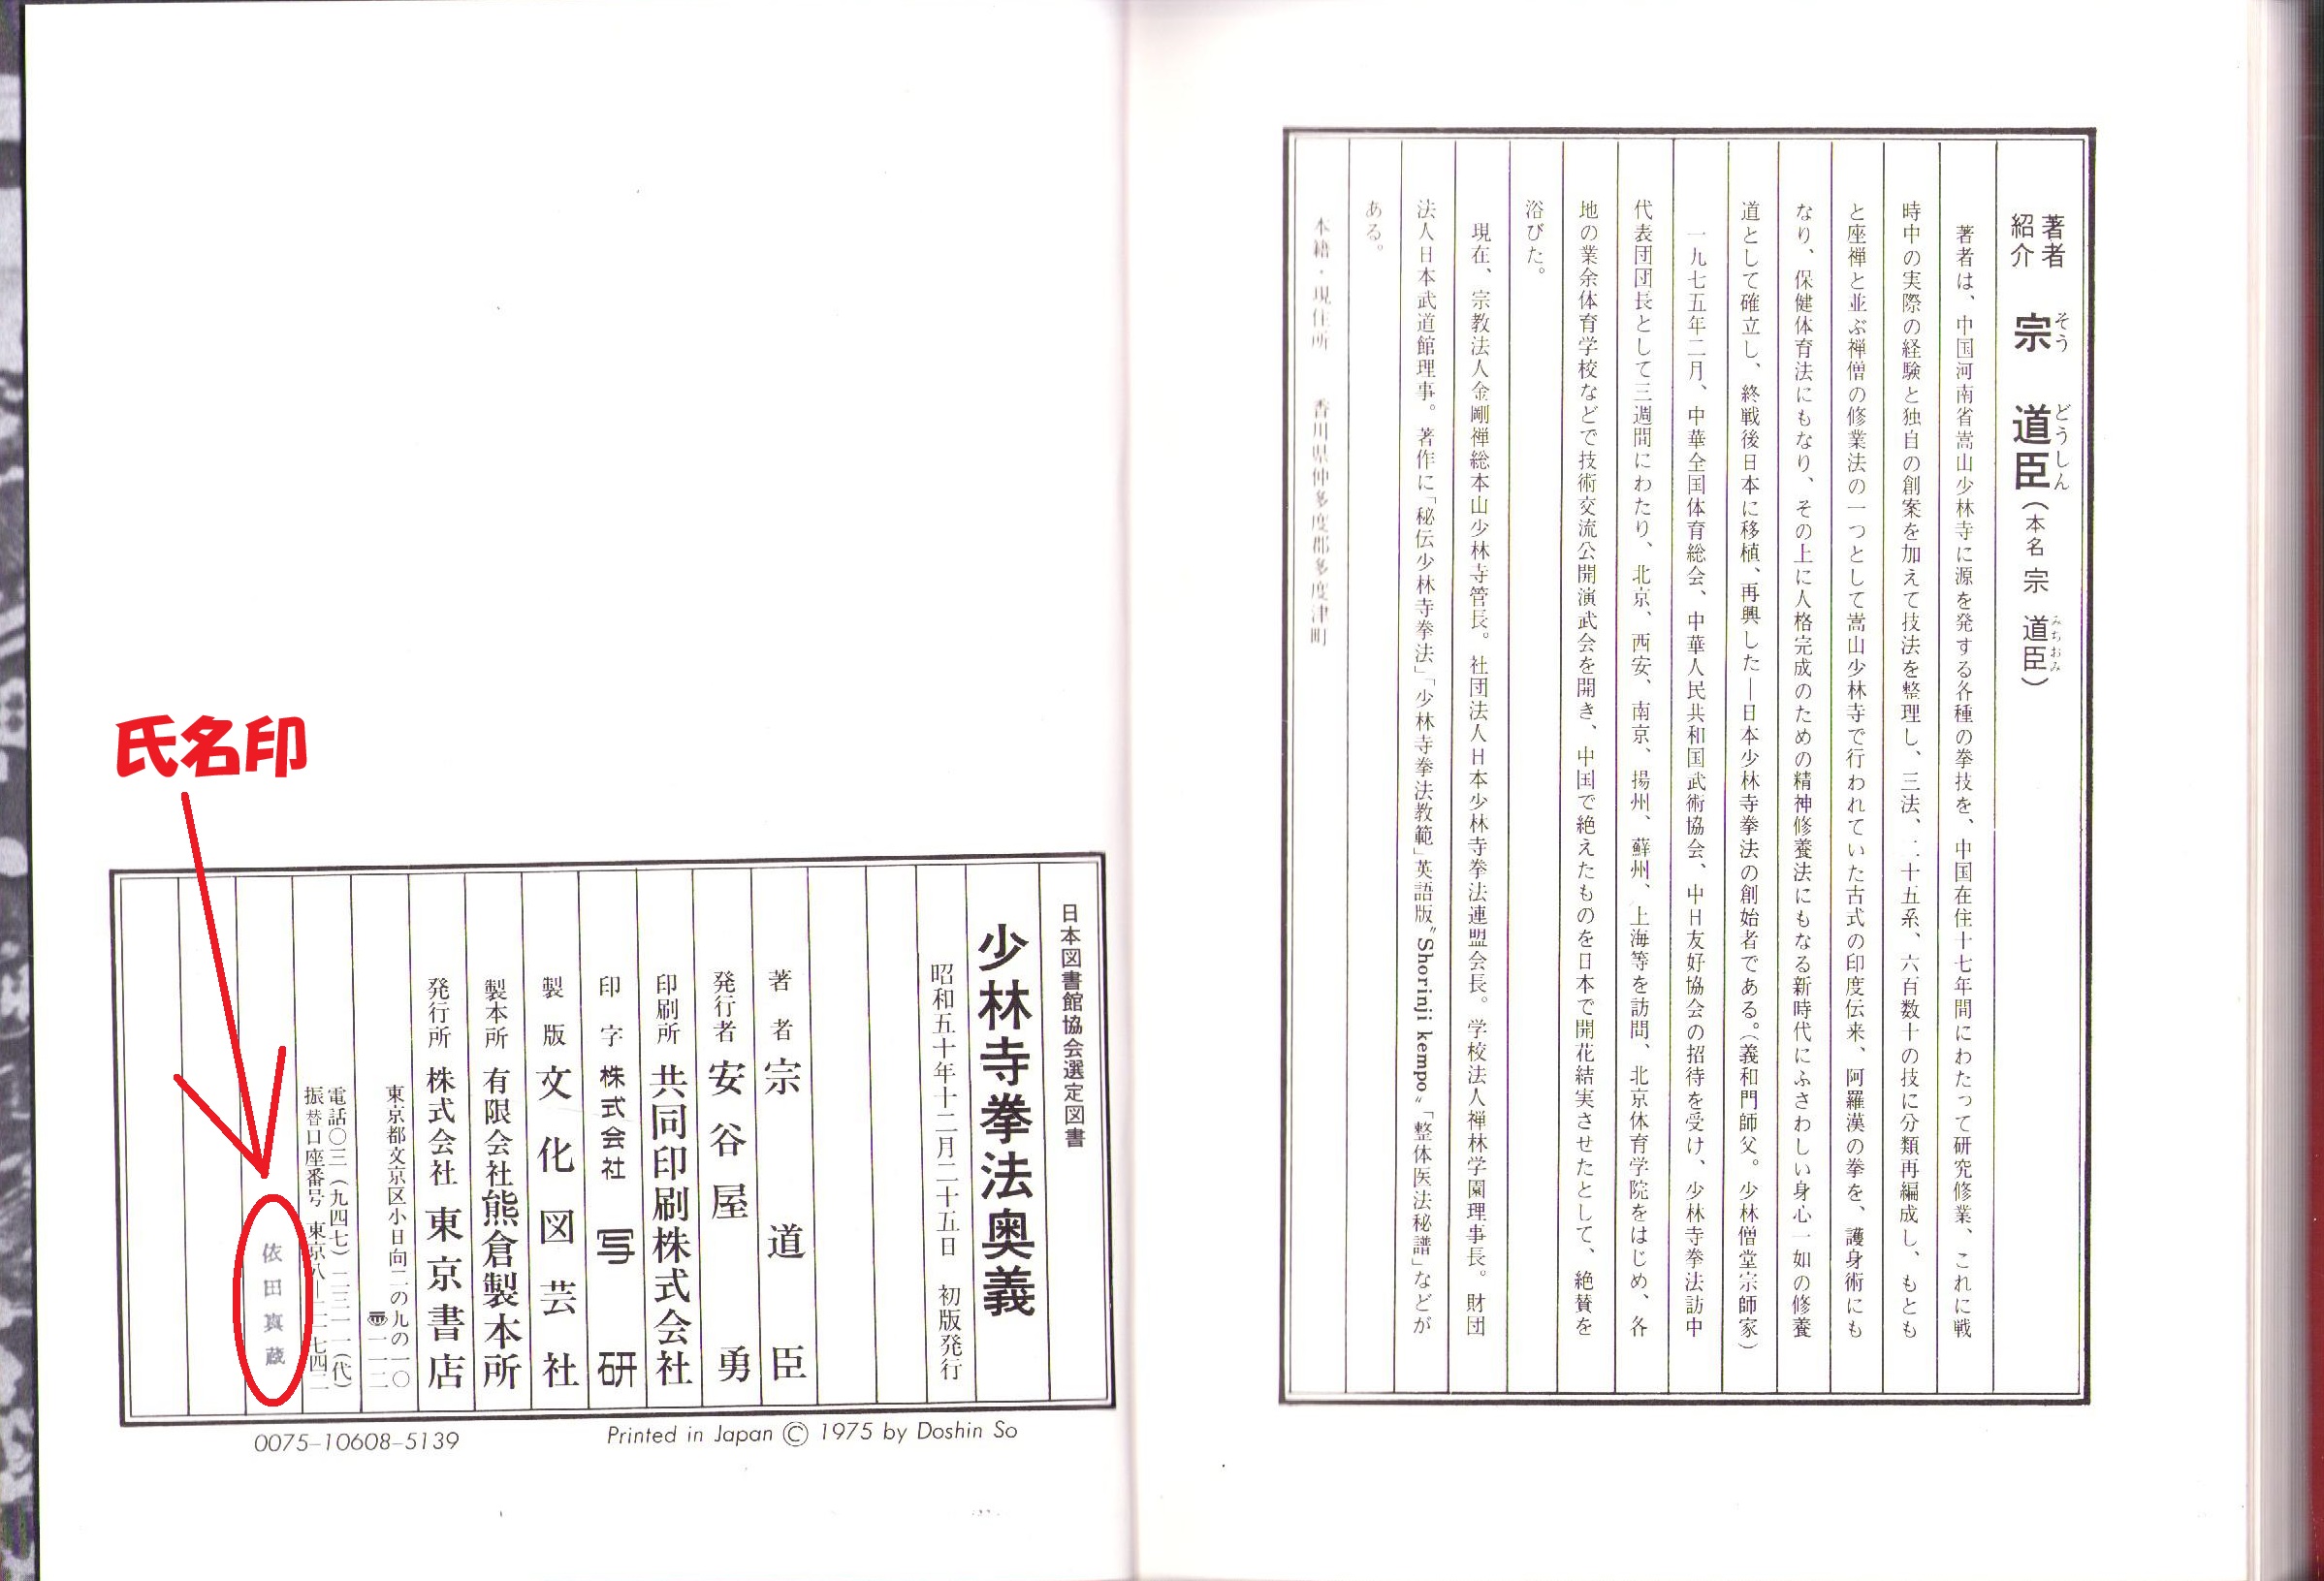 著者紹介 宗 道臣(本名 宗 道臣)
そう どうしん みちおみ
著者は、中国河南省嵩山少林寺に源を発する各種の拳技を、中国在住十七年間にわたって研究修業、これに戦
時中の実際の経験と独自の創案を加えて技法を整理し、三法、二十五系、六百数十の技に分類再編成し、もとも
と座禅と並ぶ禅僧の修業法の一つとして嵩山少林寺で行われていた古式の印度伝来、阿羅漢の拳を、護身術にも
なり、保健体育法にもなり、その上に人格完成のための精神修養法にもなる新時代にふさわしい身心一如の修養
道として確立し、終戦後日本に移植、再興した―日本少林寺拳法の創始者である。(義和門師父。少林僧堂宗師家)
一九七五年二月、中華全国体育総会、中華人民共和国武術協会、中日友好協会の招待を受け、少林寺拳法訪中
代表団団長として三週間にわたり、北京、西安、南京、揚州、蘇州、上海等を訪問、北京体育学院をはじめ、各
地の業余体育学校などで技術交流公開演武会を開き、中国で絶えたものを日本で開花結実させたとして、絶賛を
浴びた。
現在、宗教法人金剛禅総本山少林寺管長。社団法人日本少林寺拳法連盟会長。学校法人禅林学園理事長。財団
法人日本武道館理事。著作に「秘伝少林寺拳法」「少林寺拳法教範」英語版〝Shorinji kempo〟「整体医法秘譜」などが
ある。
本籍・現住所 香川県仲多度郡多度津町
氏名印
日本図書館協会選定図書
少林寺拳法奥義
昭和五十年十二月二十五日 初版発行
著者 宗 道臣
発行者 安谷屋 勇
印刷所 共同印刷株式会社
印字 株式会社 写研
製版 文化図芸社
製本所 有限会社熊倉製本所
発行所 株式会社 東京書店
東京都文京区小日向二の九の一〇
〒一一二
電話〇三(九四七)二三一一(代)
振替口座番号 東京八―二一七四二
依田真蔵
0075-10608-5139
Printed in Japan © 1975 by Doshin So